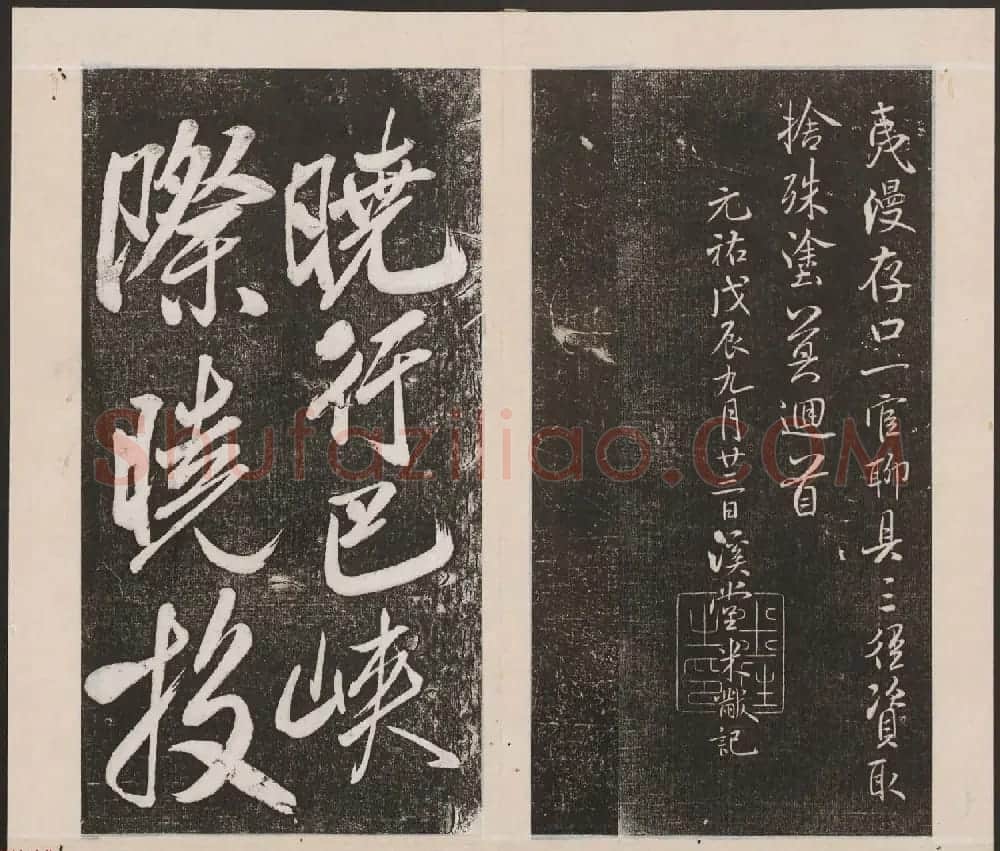 夷漫存口一官聊具三徑資取
捨殊塗莫迴首
元祐戊辰九月廿三日溪堂米黻記
曉行巴峽
際曉投
Shufaziliao.COM